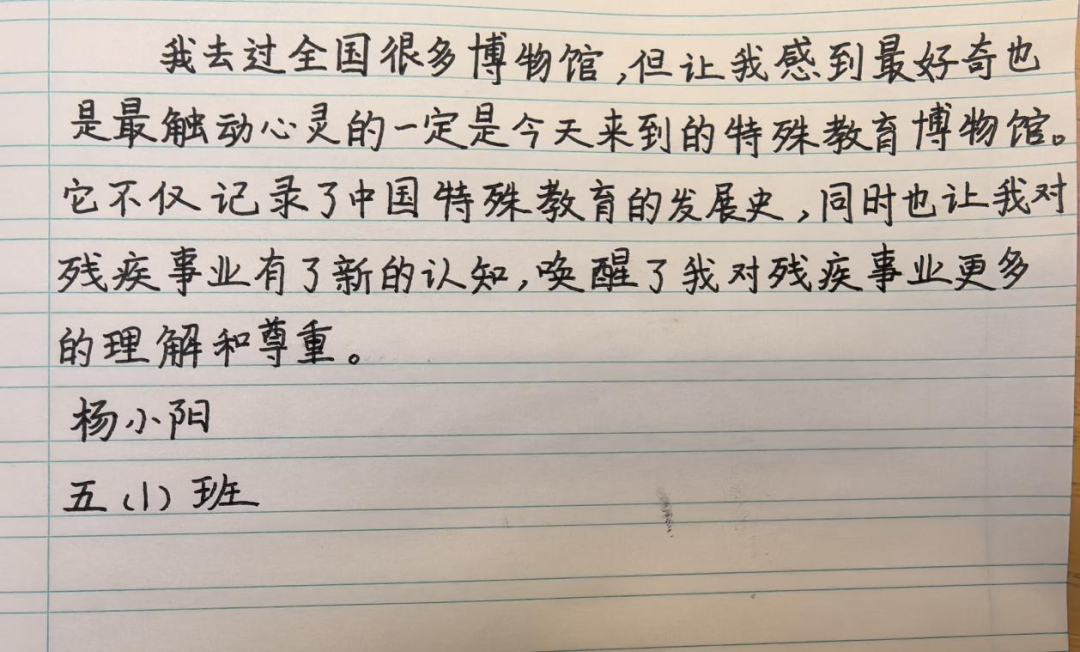 我去过全国很多博物馆,但让我感到最好奇也
是最触动心灵的一定是今天来到的特殊教育博物馆。
它不仅记录了中国特殊教育的发展史,同时也让我对
残疾事业有了新的认知,唤醒了我对残疾事业更多
的理解和尊重。
杨小阳
五(1)班